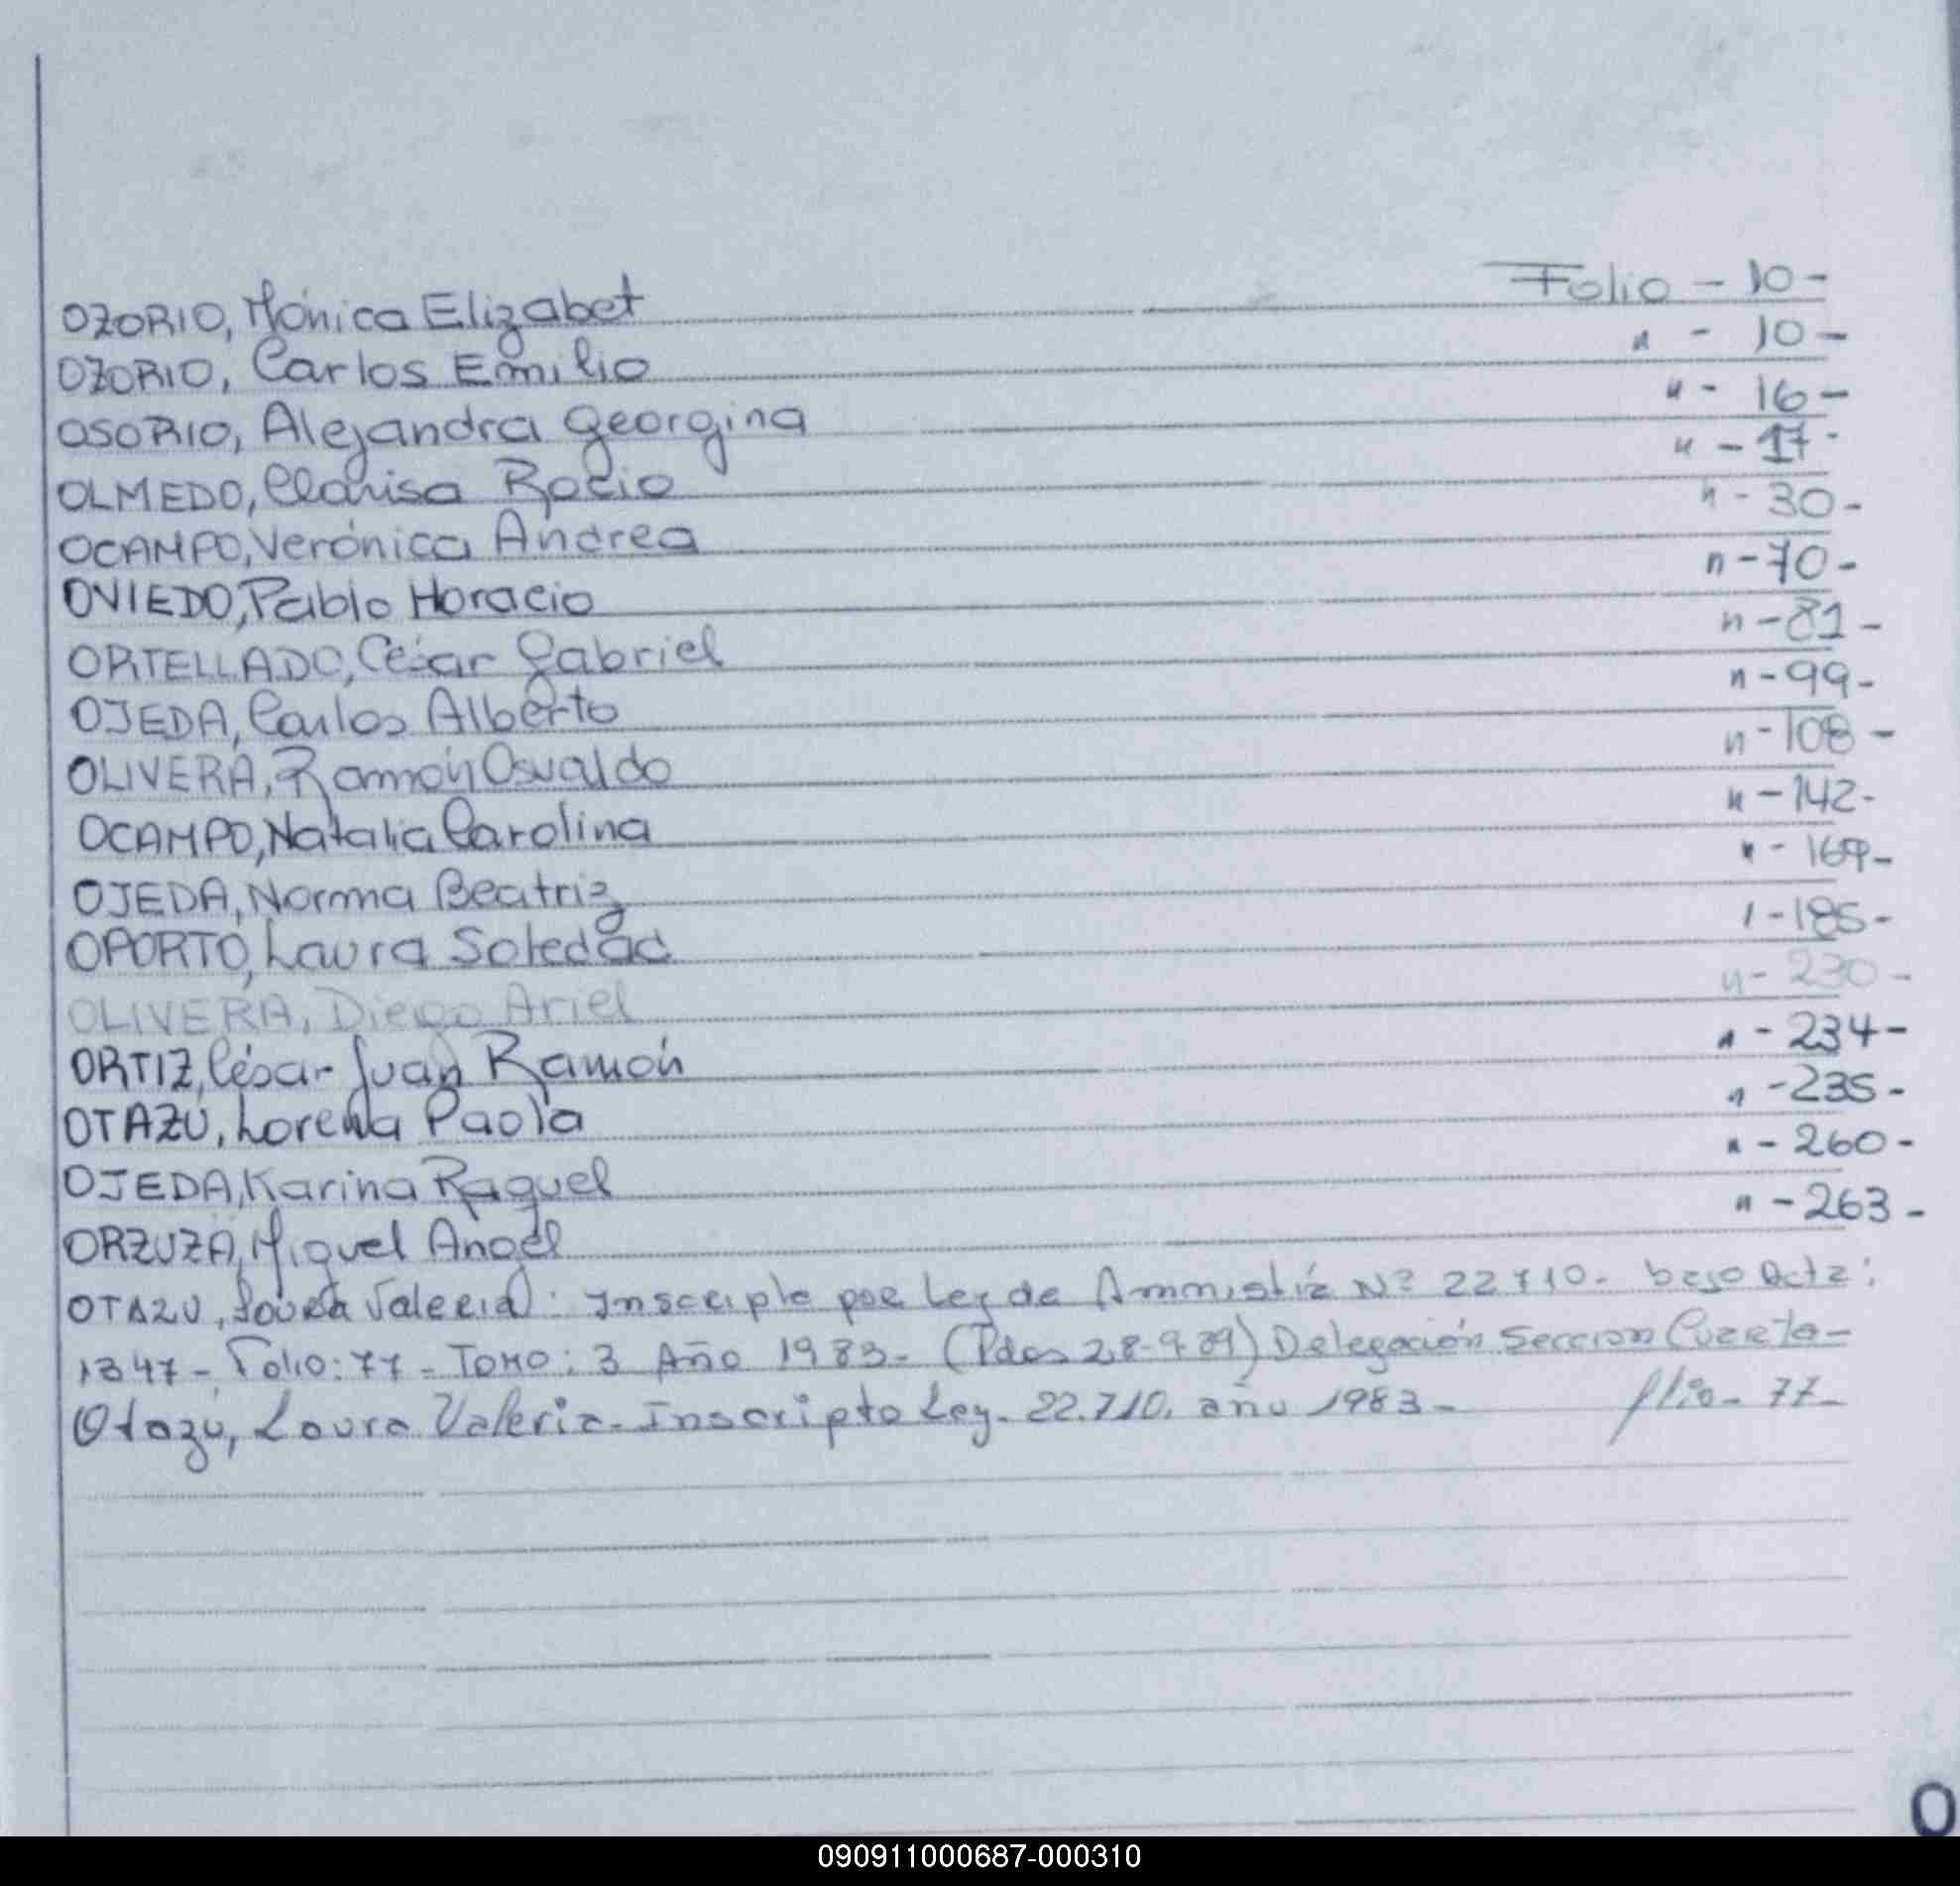 OZORIO, Mónica Elizabet Folio - 10 -
OZORIO, Carlos Emilio " - 10 -
OSORIO, Alejandra Georgina " - 16 -
OLMEDO, Clarisa Rocio " - 17 -
OCAMPO, Verónica Andrea " - 30 -
OVIEDO, Pablo Horacio " - 70 -
ORTELLADO, César Gabriel " - 81 -
OJEDA, Carlos Alberto " - 99 -
OLIVERA, Ramón Osvaldo " - 108 -
OCAMPO, Natalia Carolina " - 142 -
OJEDA, Norma Beatriz " - 169 -
OPORTO, Laura Soledad " - 185 -
OLIVERA, Diego Ariel " - 230 -
ORTIZ, César Juan Ramón " - 234 -
OTAZÚ, Lorena Paola " - 235 -
OJEDA, Karina Raquel " - 260 -
ORZUZA, Miguel Angel " - 263 -
OTAZU, Laura Valeria: Inscripto por Ley de Ammistía Nº 22710. bajo Acta:
1347 - Folio: 77 - Tomo: 3 Año 1983 - Delegación Sección Cuarta -
Otazú, Laura Valeria. Inscripto Ley. 22.710. año 1983 - flio - 77 -
O
090911000687-000310